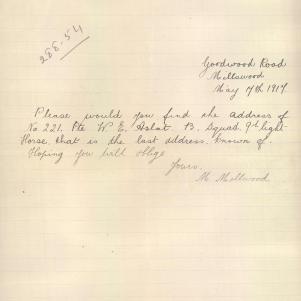 288-54
Goodwood Road
Millswood
May 17th 1917.
Please would you find the address of
No 221. Pte W. E. B. Squad. 9th Light
Horse, that is the last address, known of.
Hoping you will oblige
Yours.
M. Mellwood